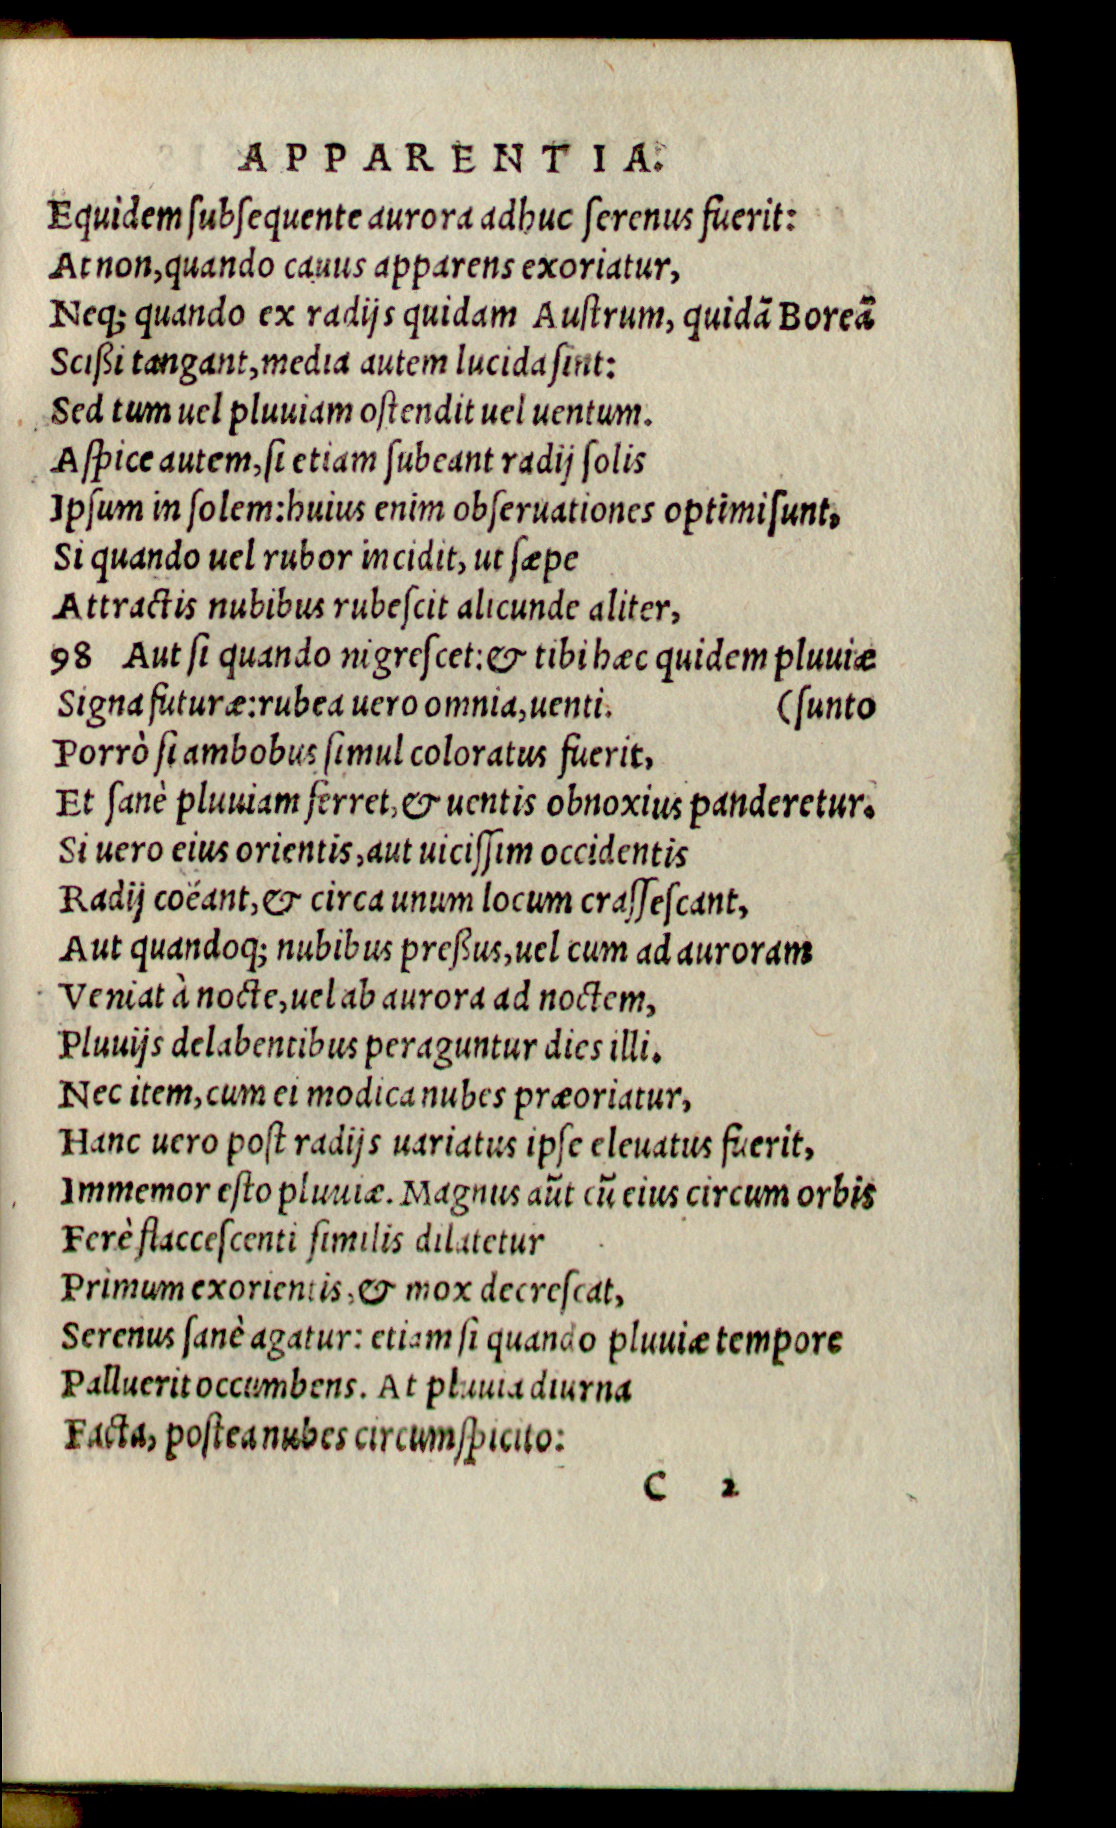 APPARENTIA.
Equidem ſubſequente aurora adhuc ſerenus fuerit:
At non, quando cauus apparens exoriatur,
Neq; quando ex radijs quidam Auſtrum, quidã Boreã
Scißi tangant, media autem lucida ſint:
Sed tum uel pluuiam oſtendit uel uentum.
Aſpice autem, ſi etiam ſubeant radij ſolis
Ipſum in ſolem: huius enim obſeruationes optimi ſunt.
Si quando uel rubor incidit, ut ſæpe
Attractis nubibus rubeſcit alicunde aliter,
98 Aut ſi quando nigreſcet: & tibi hæc quidem pluuiæ
Signa futuræ: rubea uero omnia, uenti. (ſunto
Porrò ſi ambobus ſimul coloratus fuerit,
Et ſanè pluuiam ferret, & uentis obnoxius panderetur.
Si uero eius orientis, aut uiciſſim occidentis
Radij coëant, & circa unum locum craſſeſcant,
Aut quandoq; nubibus preßus, uel cum ad auroram
Veniat à nocte, uel ab aurora ad noctem,
Pluuijs delabentibus peraguntur dies illi.
Nec item, cum ei modica nubes præoriatur,
Hanc uero poſt radijs uariatus ipſe eleuatus fuerit,
Immemor eſto pluuiæ. Magnus aũt cũ eius circum orbis
Ferè flacceſcenti ſimilis dilatetur
Primum exorientis, & mox decreſcat,
Serenus ſanè agatur: etiam ſi quando pluuiæ tempore
Palluerit occumbens. At pluuia diurna
Facta, poſtea nubes circumſpicito:
C 2